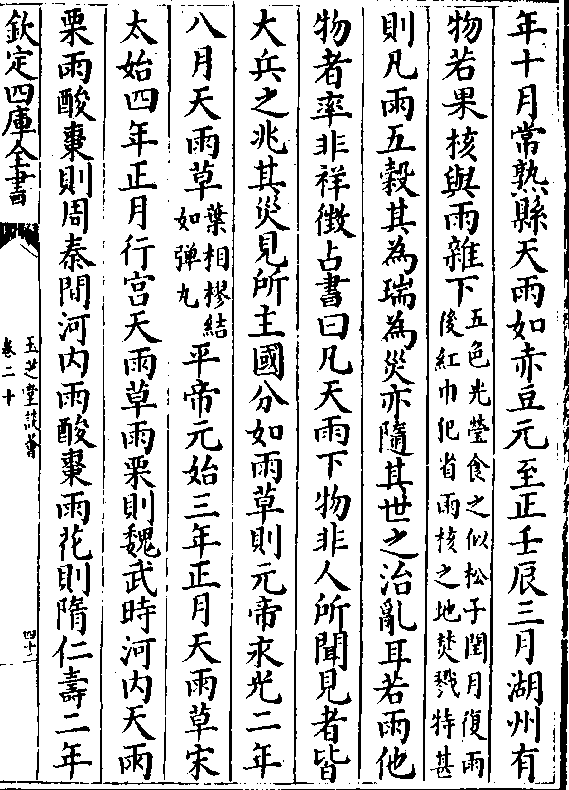 年十月常熟縣天雨如赤豆元至正壬辰三月湖州有
物若果核與雨雜下五色光瑩食之似松子閏月復雨
後紅巾犯省雨核之地焚戮特甚
則凡雨五穀其為瑞為災亦隨其世之治亂耳若雨他
物者率非祥徵占書曰凡天雨下物非人所聞見者皆
大兵之兆其災見所主國分如雨草則元帝永光二年
八月天雨草葉相樛結
如彈丸
平帝元始三年正月天雨草宋
太始四年正月行宫天雨草雨栗則魏武時河内天雨
栗雨酸棗則周秦間河内雨酸棗雨花則隋仁壽二年
欽定四庫全書
玉芝堂談薈
卷二十
四十二